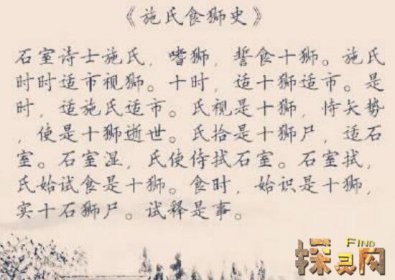 《施氏食狮史》
石室诗士施氏，嗜狮，誓食十狮。施氏
时时适市视狮。十时，适十狮适市。是
时，适施氏适市。氏视是十狮，恃矢势
，使是十狮逝世。氏拾是十狮尸，适石
室。石室湿，氏使侍拭石室。石室拭，
氏始试食是十狮。食时，始识是十狮，
实十石狮尸。试释是事。
FIND
探灵网